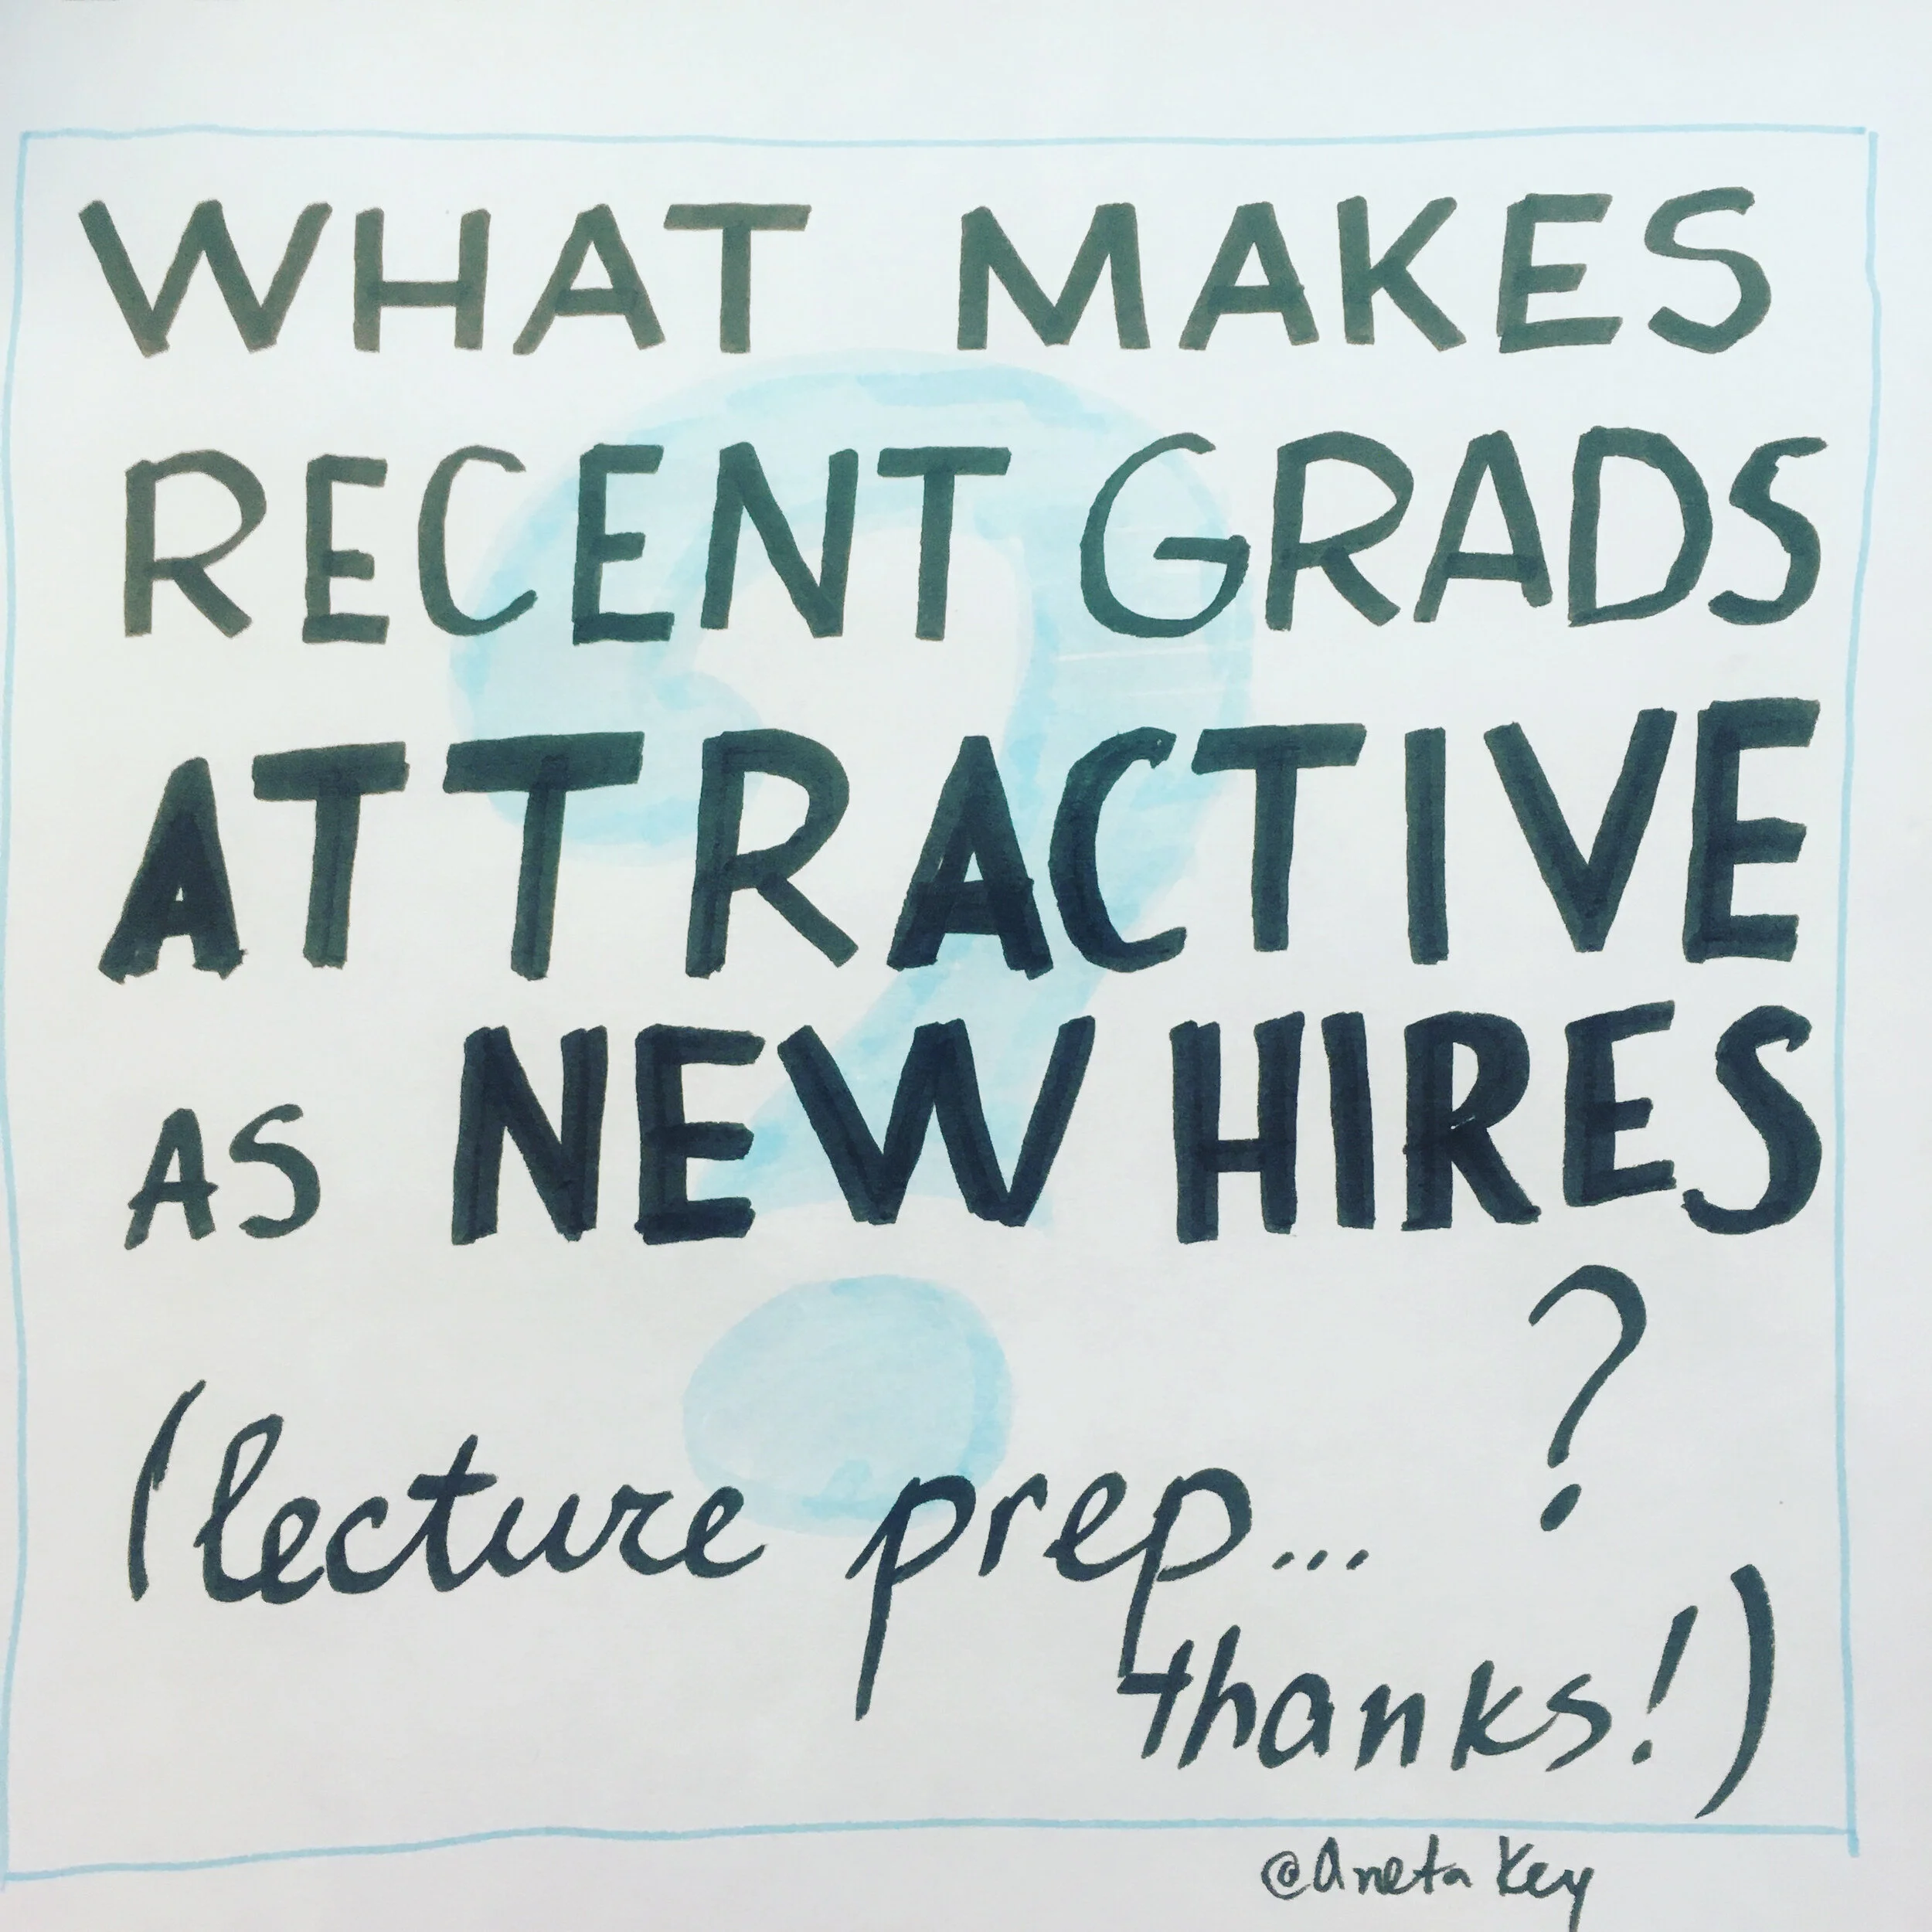 WHAT MAKES
RECENT GRADS
ATTRACTIVE
AS NEW HIRES
?
(lecture prep...
thanks!)
@Aneta Key